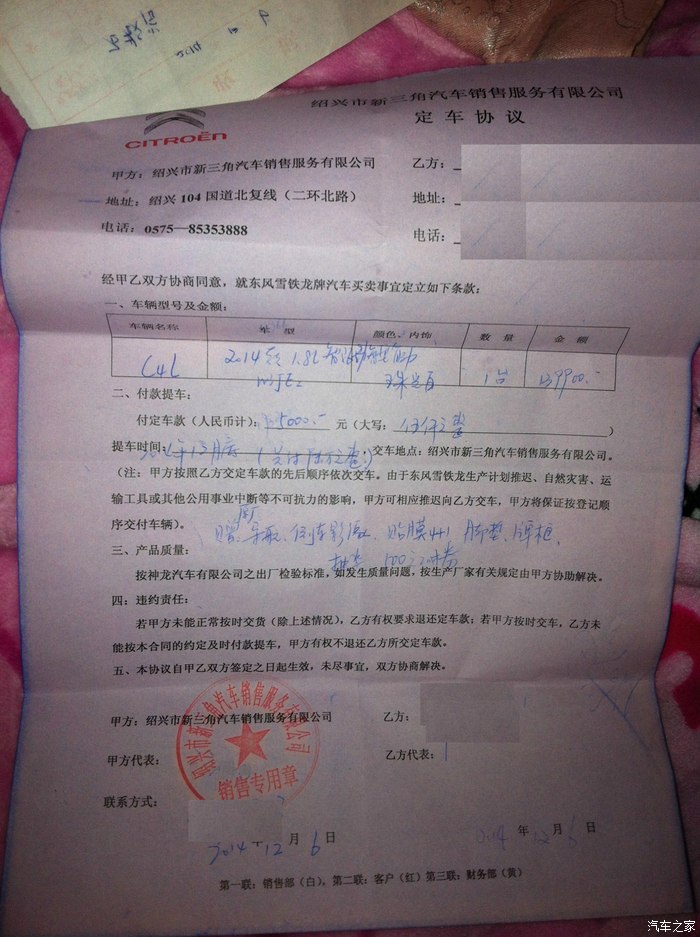 2014
绍兴市新三角汽车销售服务有限公司
定车协议
CITROËN
甲方：绍兴市新三角汽车销售服务有限公司 乙方：
地址：绍兴 104 国道北复线（二环北路） 地址：
电话：0575—85353888 电话：
经甲乙双方协商同意，就东风雪铁龙牌汽车买卖事宜定立如下条款：
一、车辆型号及金额：
车辆名称 车 型 颜色、内饰 数 量 金 额
C4L 2014款 1.8L 1台 139900.-
珠光白
二、付款提车：
付定车款（人民币计）：5000.- 元（大写：伍仟元整）
提车时间： 年12月底 ；交车地点：绍兴市新三角汽车销售服务有限公司。
（注：甲方按照乙方交定车款的先后顺序依次交车。由于东风雪铁龙生产计划推迟、自然灾害、运
输工具或其他公用事业中断等不可抗力的影响，甲方可相应推迟向乙方交车，甲方将保证按登记顺
序交付车辆）。
导航、倒车影像、贴膜 、脚垫、牌框、
三、产品质量：
100元
按神龙汽车有限公司之出厂检验标准，如发生质量问题，按生产厂家有关规定由甲方协助解决。
四：违约责任：
若甲方未能正常按时交货（除上述情况），乙方有权要求退还定车款；若甲方按时交车，乙方未
能按本合同的约定及时付款提车，甲方有权不退还乙方所交定车款。
五、本协议自甲乙双方签定之日起生效，未尽事宜，双方协商解决。
甲方：绍兴市新三角汽车销售服务有限公司 乙方：
甲方代表： 乙方代表：
绍兴市新三角汽车销售服务有限公司
销售专用章
联系方式：
2014 年 12 月 6 日 2014 年 12 月 6 日
第一联：销售部（白），第二联：客户（红）第三联：财务部（黄）
汽车之家